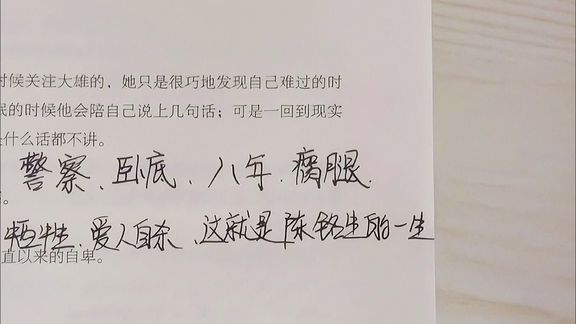 时候关注大雄的，她只是很巧地发现自己难过的时
的时候他会陪自己说上几句话；可是一回到现实
什么话都不讲。
警察、卧底、八年、瘸腿、
牺牲、爱人自杀、这就是陈铭生的一生
直以来的自卑。